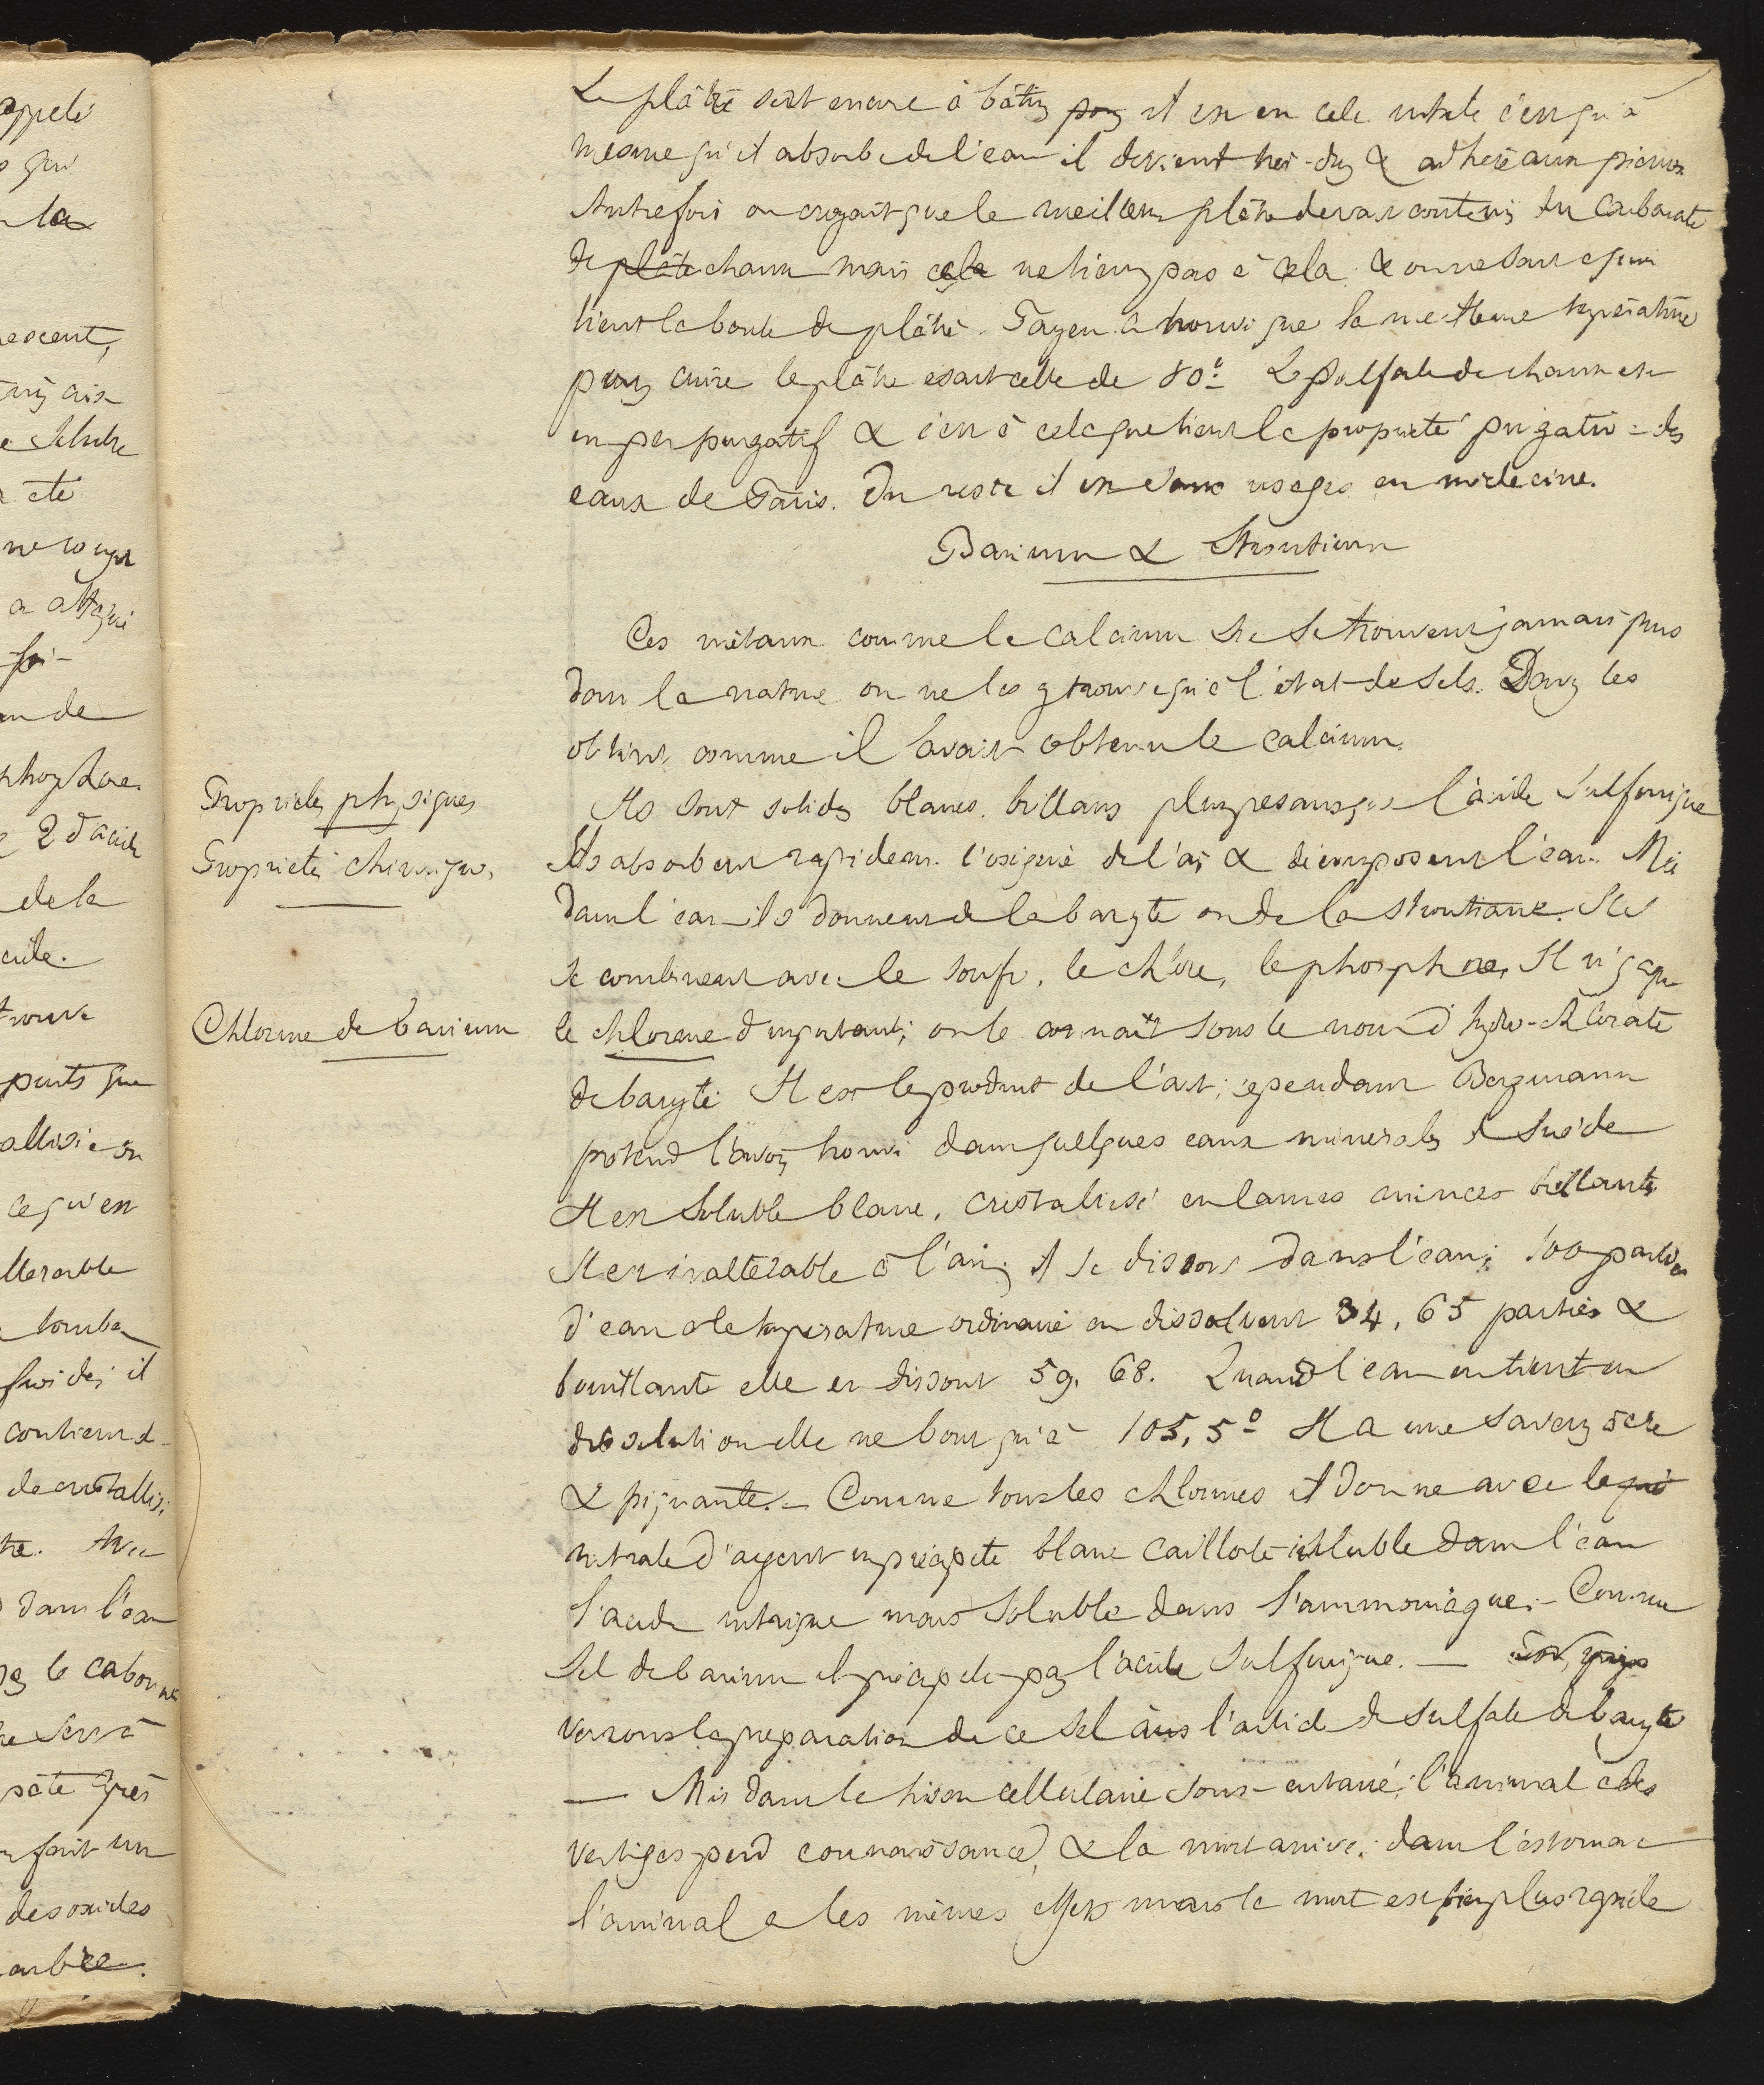 Le plâtre sert encore à bâtir il est en cela utile c'est qu'à
mesure qu'il absorbe de l'eau il devient très-dur & adhère aux pierres
Autrefois on croyait que le meilleur plâtre devait contenir du Carbonate
de plâtre chaux mais cela ne tient pas à cela & on ne sait à quoi
tient la bonté du plâtre. Payen a trouvé que la meilleure température
pour cuire le plâtre esait celle de 80° Le Sulfate de chaux est
un peu purgatif & c'est à cela que tient la propriété purgative des
eaux de Paris. Du reste il est sans usages en médecine.
Barium & Strontium
Ces métaux comme le Calcium ne se trouvent jamais purs
dans la nature on ne les y trouve qu'à l'état de sels. Davy les
obtint comme il l'avait obtenu le calcium.
Propriétés physiques
Ils sont solides blancs. brillans plus pesans que l'acide Sulfurique
Propriétés chimiques,
Ils absorbent rapidem. l'oxigène de l'air & décomposent l'eau. Mis
dans l'eau ils donnent de la baryte ou de la strontiane. Ils
se combinent avec le soufre, le chlore, le phosphore, Il n'y a que
Chlorure de barium
le chlorure d'important; on le connait sous le nom d'hydro-chlorate
de baryte Il est le produit de l'art; cependant Bergmann
prétend l'avoir trouvé dans quelques eaux minérales de Suède
Il est Soluble blanc, cristalisé en lames minces brillantes
Il est inaltérable à l'air; il se dissout dans l'eau; 100 parties
d'eau à la température ordinaire en dissolvent 34,65 parties &
bouillante elle en dissout 59,68. Quand l'eau en tient en
dissolution elle ne bout qu'à 105,5° Il a une saveur âcre
& piquante. - Comme tous les chlorures il donne avec le
nitrate d'argent un précipité blanc cailloté insoluble dans l'eau
l'acide nitrique mais soluble dans l'ammoniaque; - Comme
Sel de barium il précipite par l'acide Sulfurique. —
verrons la préparation de ce Sel à l'article de sulfate de baryte
— Mis dans le tissu cellulaire sous-cutané, l'animal a des
vertiges perd connaissance, & la mort arrive; dans l'estomac
l'animal a les mêmes effets mais la mort est bien plus rapide